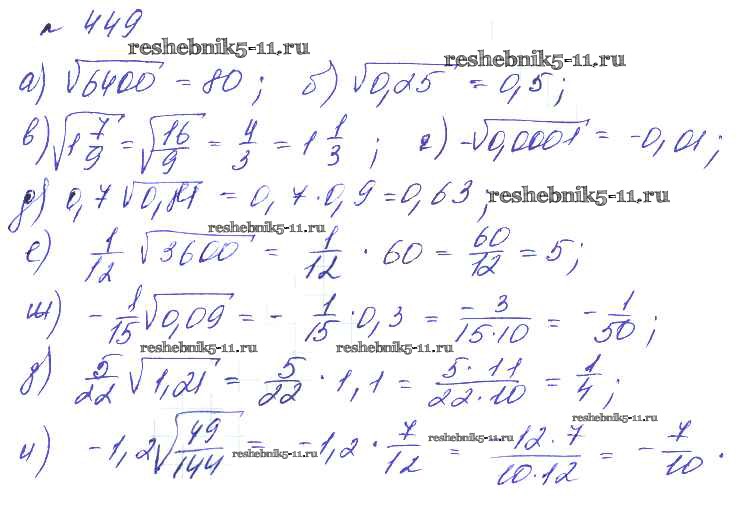 № 449
reshebnik5-11.ru
reshebnik5-11.ru
а) √6400 = 80; б) √0,25 = 0,5;
в) √1 7/9 = √16/9 = 4/3 = 1 1/3; г) -√0,0001 = -0,01;
д) 0,7 √0,81 = 0,7·0,9 = 0,63; reshebnik5-11.ru
reshebnik5-11.ru
е) 1/12 √3600 = 1/12 · 60 = 60/12 = 5;
ж) - 1/15 √0,09 = - 1/15 · 0,3 = - 3/15·10 = - 1/50;
reshebnik5-11.ru reshebnik5-11.ru
з) 5/22 √1,21 = 5/22 · 1,1 = 5·11/22·10 = 1/4;
reshebnik5-11.ru
и) -1,2 √49/144 = -1,2 · 7/12 = 12·7/10·12 = - 7/10.
reshebnik5-11.ru reshebnik5-11.ru reshebnik5-11.ru